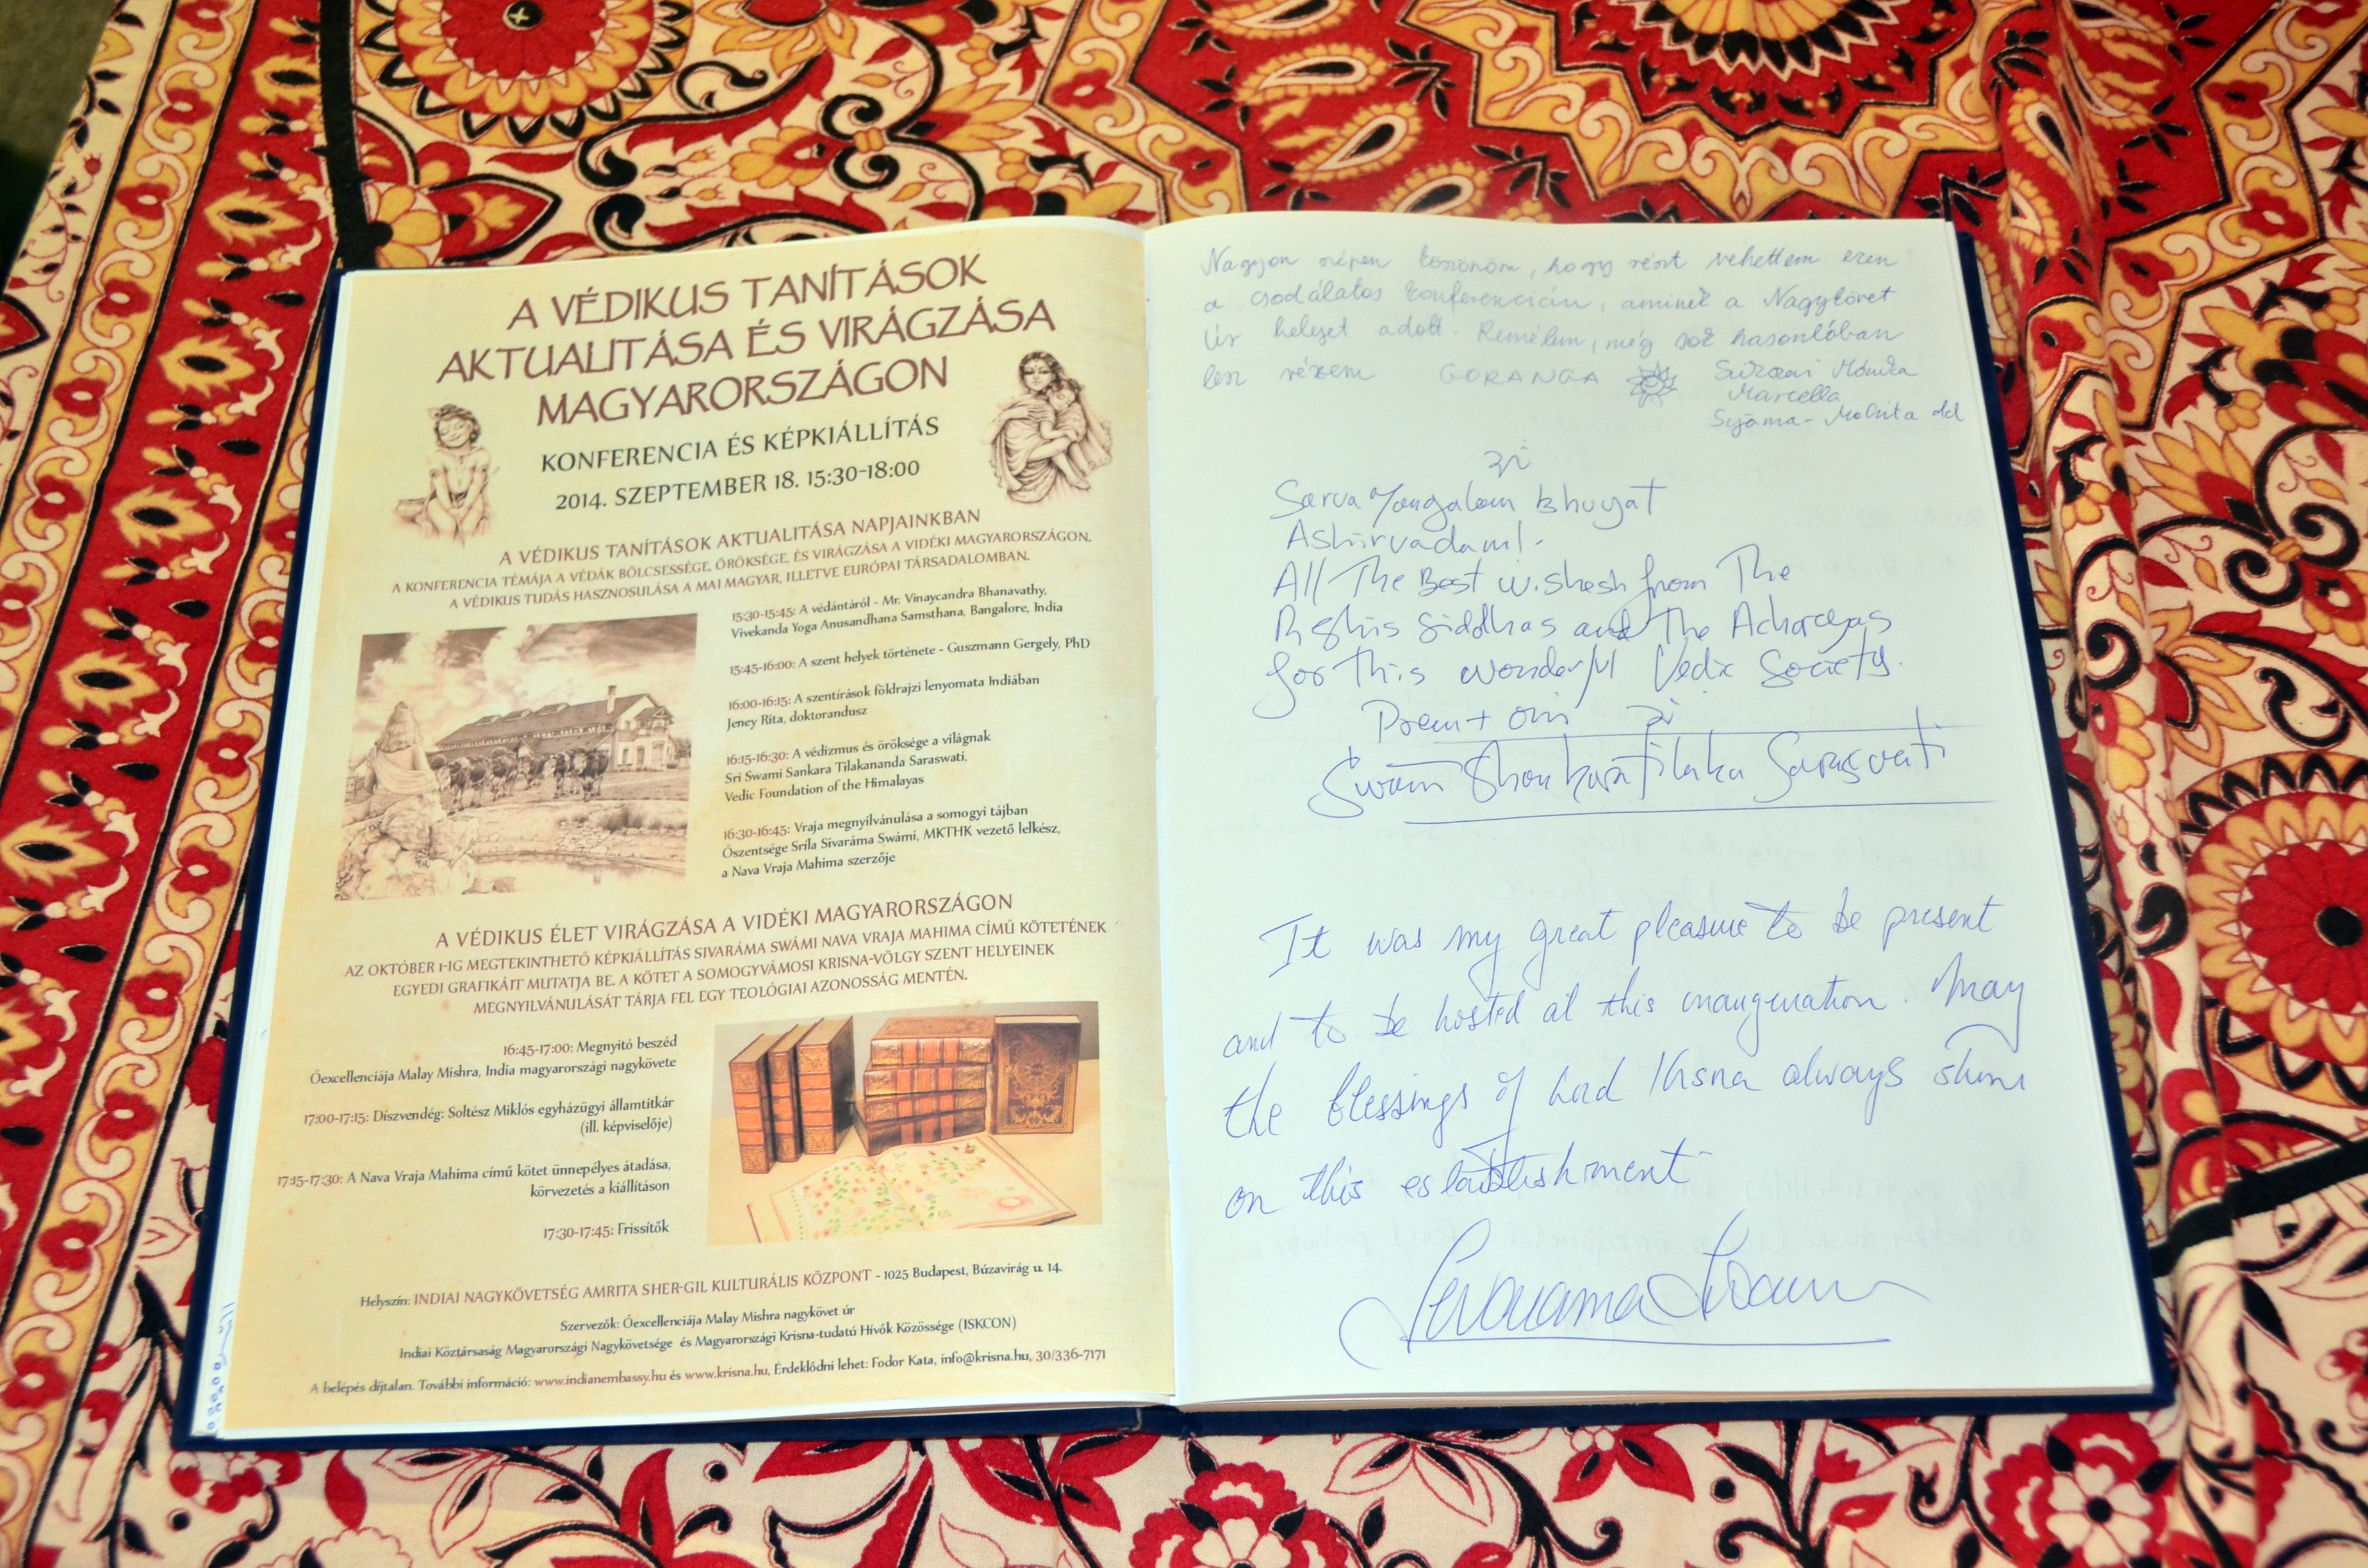 A VÉDIKUS TANÍTÁSOK
AKTUALITÁSA ÉS VIRÁGZÁSA
MAGYARORSZÁGON
KONFERENCIA ÉS KÉPKIÁLLÍTÁS
2014. SZEPTEMBER 18. 15:30-18:00
A VÉDIKUS TANÍTÁSOK AKTUALITÁSA NAPJAINKBAN
A KONFERENCIA TÉMÁJA A VÉDÁK BÖLCSESSÉGE, ÖRÖKSÉGE, ÉS VIRÁGZÁSA A VIDÉKI MAGYARORSZÁGON.
A VÉDIKUS TUDÁS HASZNOSULÁSA A MAI MAGYAR, ILLETVE EURÓPAI TÁRSADALOMBAN.
15:30-15:45: A védántáról - Mr. Vinaycandra Bhanavathy,
Vivekanda Yoga Anusandhana Samsthana, Bangalore, India
15:45-16:00: A szent helyek története - Guszmann Gergely, PhD
16:00-16:15: A szentírások földrajzi lenyomata Indiában
Jeney Rita, doktorandusz
16:15-16:30: A védizmus és öröksége a világnak
Sri Swami Sankara Tilakananda Saraswati,
Vedic Foundation of the Himalayas
16:30-16:45: Vraja megnyilvánulása a somogyi tájban
Őszentsége Sríla Sivaráma Swámi, MKTHK vezető lelkész,
a Nava Vraja Mahima szerzője
A VÉDIKUS ÉLET VIRÁGZÁSA A VIDÉKI MAGYARORSZÁGON
AZ OKTÓBER 1-IG MEGTEKINTHETŐ KÉPKIÁLLÍTÁS SIVARÁMA SWÁMI NAVA VRAJA MAHIMA CÍMŰ KÖTETÉNEK
EGYEDI GRAFIKÁIT MUTATJA BE. A KÖTET A SOMOGYVÁMOSI KRISNA-VÖLGY SZENT HELYEINEK
MEGNYILVÁNULÁSÁT TÁRJA FEL EGY TEOLÓGIAI AZONOSSÁG MENTÉN.
16:45-17:00: Megnyitó beszéd
Őexcellenciája Malay Mishra, India magyarországi nagykövete
17:00-17:15: Díszvendég: Soltész Miklós egyházügyi államtitkár
(ill. képviselője)
17:15-17:30: A Nava Vraja Mahima című kötet ünnepélyes átadása,
körvezetés a kiállításon
17:30-17:45: Frissítők
Helyszín: INDIAI NAGYKÖVETSÉG AMRITA SHER-GIL KULTURÁLIS KÖZPONT - 1025 Budapest, Búzavirág u. 14.
Szervezők: Őexcellenciája Malay Mishra nagykövet úr
Indiai Köztársaság Magyarországi Nagykövetsége és Magyarországi Krisna-tudatú Hívők Közössége (ISKCON)
A belépés díjtalan. További információ: www.indianembassy.hu és www.krisna.hu, Érdeklődni lehet: Fodor Kata, info@krisna.hu, 30/336-7171
Nagyon szépen köszönöm, hogy részt vehettem ezen
a csodálatos konferencián, aminek a Nagykövet
Úr helyet adott. Remélem, még sok hasonlóban
lesz részem GORANGA
Mónika
Marcella
Sarva Mangalam Bhuyat
Ashirvadam!-
All The Best wishesh from The
Rishis Siddhas and The Acharyas
for this wonderful Vedic Society.
Prem + om
Swami Shankaratilaka Saraswati
It was my great pleasure to be present
and to be hosted at this inauguration. May
the blessings of Lord Krsna always shine
on this establishment
Sivarama Swami